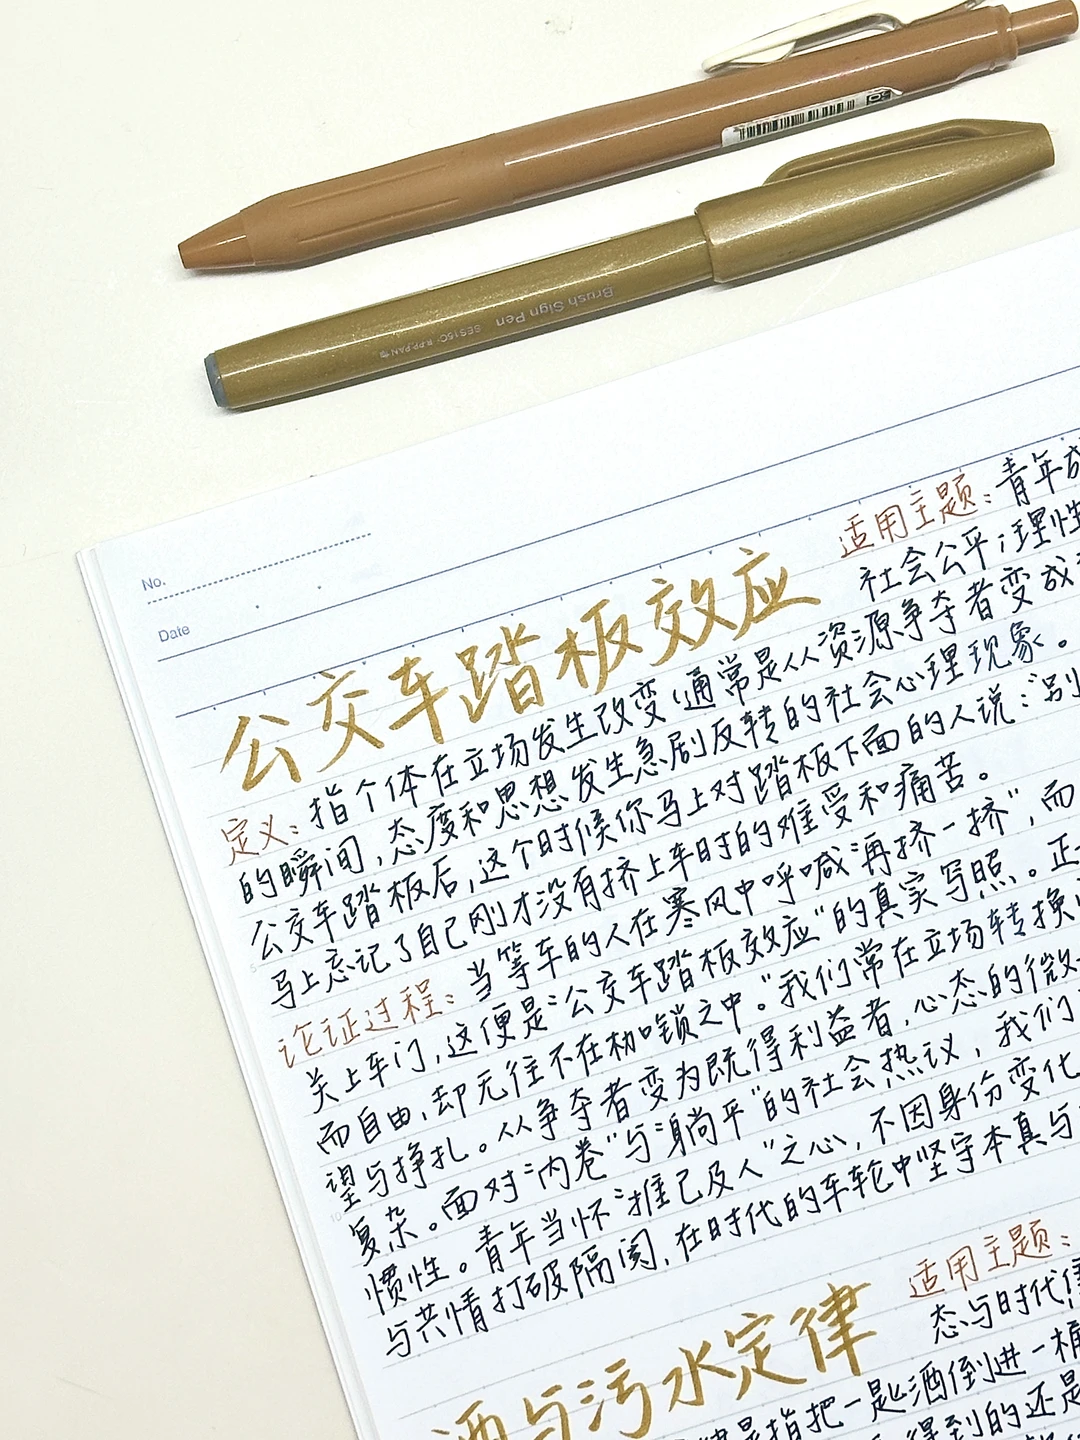 Brush Sign Pen
SES15C
No.
Date
适用主题：青年
社会公平；理性
公交车踏板效应
定义：指个体在立场发生改变（通常是从资源争夺者变成
的瞬间，态度和思想发生急剧反转的社会心理现象。
公交车踏板后，这个时候你马上对踏板下面的人说：“别
马上忘记了自己刚才没有挤上车时的难受和痛苦。
论证过程：当等车的人在寒风中呼喊“再挤一挤”，而
关上车门，这便是“公交车踏板效应”的真实写照。正
而自由，却无往不在枷锁之中。”我们常在立场转换
望与挣扎。从争夺者变为既得利益者，心态的微
复杂。面对“内卷”与“躺平”的社会热议，我们
惯性。青年当怀“推己及人”之心，不因身份变化
与共情打破隔阂，在时代的车轮中坚守本真与
适用主题：
态与时代
酒与污水定律
是指把一匙酒倒进一桶
得到的还是